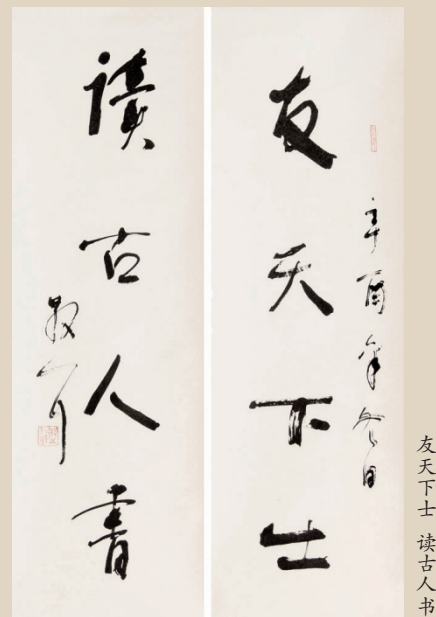 友天下士
辛酉年冬日
讀古人書
友天下士 读古人书